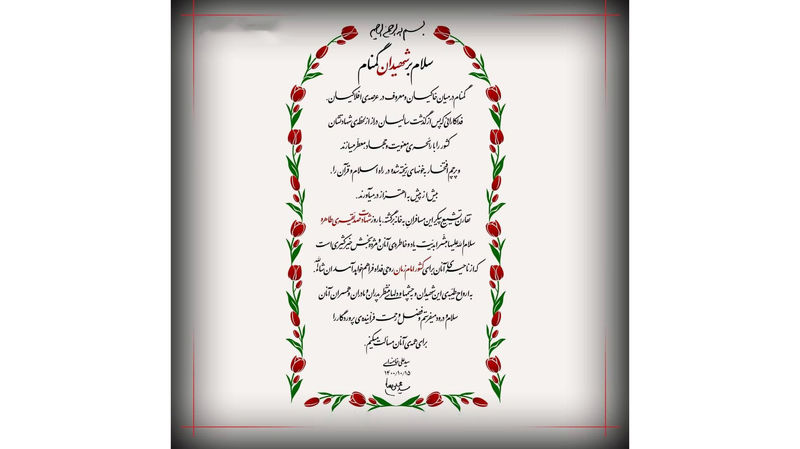 بسم الله الرحمن الرحیم
سلام بر شهیدان گمنام
گمنام در میان خاکیان و معروف در عرصه‌ی افلاکیان.
فداکارانی که پس از گذشت سالیان دراز از لحظه‌ی شهادتشان
کشور را با رائحه‌ی معنویت و جهاد معطر میسازند
و پرچم افتخار به خونهای ریخته شده در راه اسلام و قرآن را،
بیش از پیش به اهتزاز در می‌آورند.
تقارن تشییع پیکر این مسافران به خانه برگشته، با روز شهادت صدیقه‌ی طاهره
سلام الله علیها مبشر اهمیت یاد و خاطره‌ی آنان و مژده‌بخش خیر کثیری است
که از ناحیه‌ی آنان برای کشور امام زمان روحی فداه فراهم خواهد آمد ان شاءالله.
به ارواح طیبه‌ی این شهیدان و به چشمها و دلهای منتظر پدران و مادران و همسران آنان
سلام و درود میفرستم و فضل و رحمت فزاینده‌ی پروردگار را
برای همه‌ی آنان مسألت میکنم.
سیدعلی خامنه‌ای
۱۴۰۰/۱۰/۱۵